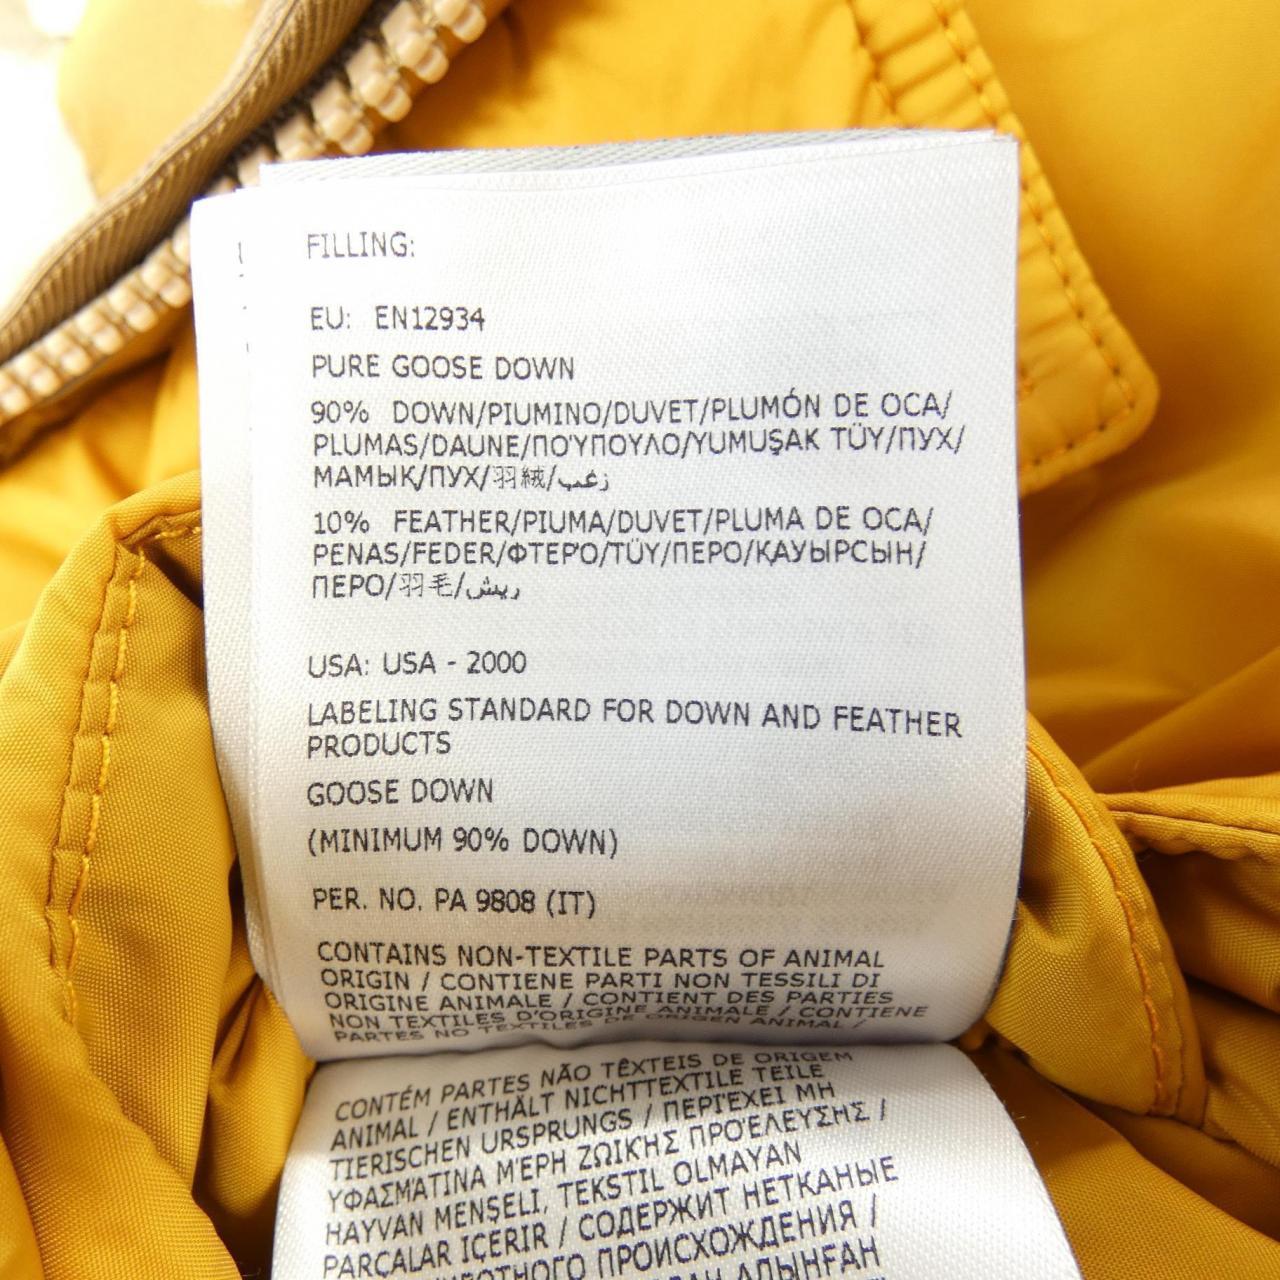 FILLING:
EU: EN12934
PURE GOOSE DOWN
90% DOWN/PIUMINO/DUVET/PLUMÓN DE OCA/
PLUMAS/DAUNE/ΠΟΎΠΟΥΛΟ/YUMUŞAK TÜY/ПУХ/
МАМЫҚ/ПУХ/羽絨/زغب
10% FEATHER/PIUMA/DUVET/PLUMA DE OCA/
PENAS/FEDER/ΦΤΕΡΌ/TÜY/ПЕРО/ҚАУЫРСЫН/
ПЕРО/羽毛/ريش
USA: USA - 2000
LABELING STANDARD FOR DOWN AND FEATHER
PRODUCTS
GOOSE DOWN
(MINIMUM 90% DOWN)
PER. NO. PA 9808 (IT)
CONTAINS NON-TEXTILE PARTS OF ANIMAL
ORIGIN / CONTIENE PARTI NON TESSILI DI
ORIGINE ANIMALE / CONTIENT DES PARTIES
NON TEXTILES D'ORIGINE ANIMALE / CONTIENE
PARTES NO TEXTILES DE ORIGEN ANIMAL /
CONTÉM PARTES NÃO TÊXTEIS DE ORIGEM
ANIMAL / ENTHÄLT NICHTTEXTILE TEILE
TIERISCHEN URSPRUNGS / ΠΕΡΙΈΧΕΙ ΜΗ
ΥΦΑΣΜΆΤΙΝΑ ΜΈΡΗ ΖΩΙΚΉΣ ΠΡΟΈΛΕΥΣΗΣ /
HAYVAN MENŞELİ, TEKSTIL OLMAYAN
PARÇALAR IÇERIR / СОДЕРЖИТ НЕТКАНЫЕ
ПРОИСХОЖДЕНИЯ /
АЛЫНҒАН